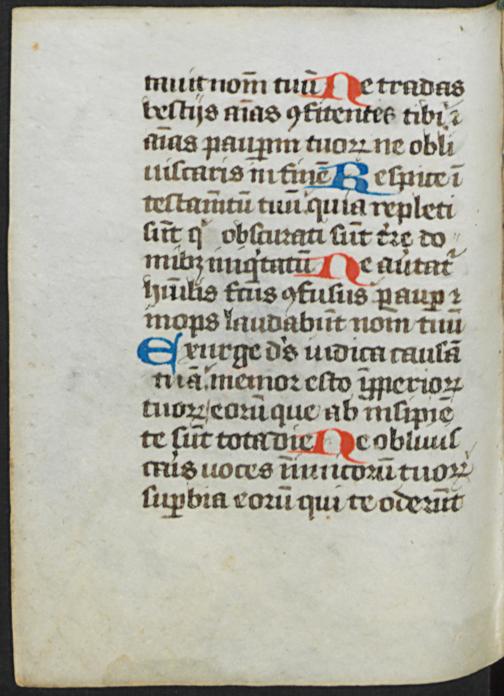 tauit nom̄ tuū Ne tradas
bestijs aīas ꝯfitentes tibi ⁊
aīas paupm̄ tuoꝝ ne obli
uiscaris in finē Respice ī
testam̄tū tuū quia repleti
sūt q̄ obscurati sūt tr̄e do
mibꝫ iniq̄tatū Ne au̾tat᷑
hūilis fc̄us ꝯfusus paup̄ ⁊
inops laudabūt nom̄ tuū
Exurge ds̄ iudica causā
tuā memor esto ip̄perioꝝ
tuoꝝ eorū que ab insipiē
te sūt tota die Ne obliuis
caris uoces īimicorū tuoꝝ
suꝑbia eorū qui te oderūt